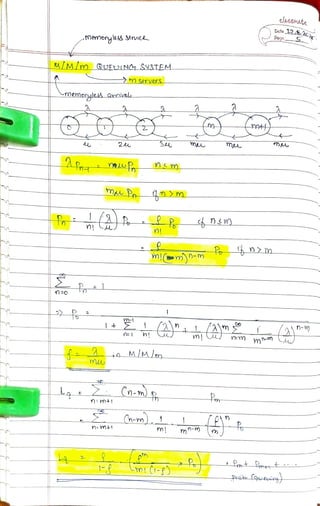 classmate
Date 12.
Page 5
memoryless service
M/M/m QUEUING SYSTEM
→ m servers
memoryless arrival
λ λ λ λ λ λ
0 1 2 m m+1
μ 2μ 3μ mμ mμ mμ
λ Pn-1 = nμ Pn n ≤ m
mμ Pn if n > m
Pn = 1/n! (λ/μ)^n P0 = ρ/n! P0 if n ≤ m
= ρ/(m! ( m)^(n-m)) P0 if n > m
∞ Σ n=0 Pn = 1
⇒ P0 = 1 / (1 + Σ n=1 ^(m-1) 1/n! (λ/μ)^n + 1/m! (λ/μ)^m Σ n=m ^∞ 1/m^(n-m) (λ/μ)^(n-m))
ρ = λ/mμ in M/M/m
Lq = Σ n=m+1 ^∞ (n-m) Pn Pm
= Σ n=m+1 ^∞ (n-m) . 1/m! . 1/m^(n-m) (ρ/m)^n . P0
Lq = ρ/(1-ρ) (ρ^m/(m! (1-ρ)) × P0) + Pm + Pm+1 + ...
prob (queuing)